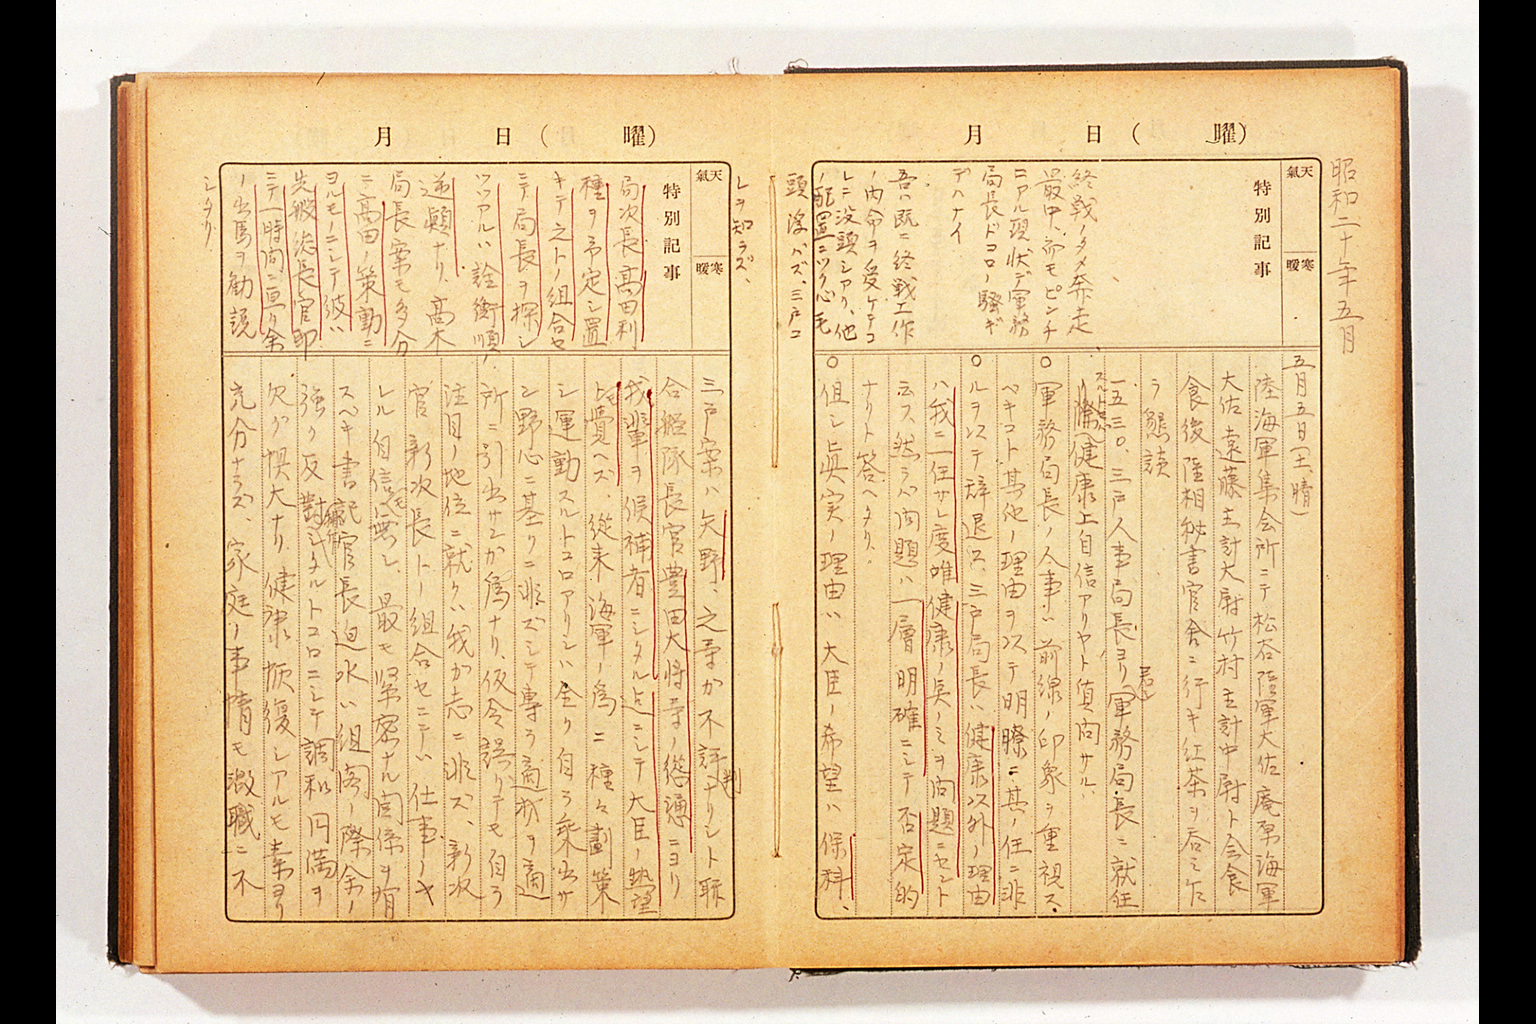 昭和二十年五月
月 日 ( 曜)
天氣
寒暖
特別記事
終戦ノタメ奔走
最中、而モピンチ
ニアル現状デ軍務
局長ドコロノ騒ギ
デハナイ
吾ハ既ニ終戦工作
ノ内命ヲ受ケテコ
レニ没頭シアリ、他
ノ配置ニツク心モ
頭浮バズ、三戸コ
レヲ知ラズ、
五月五日(土、晴)
陸海軍集会所ニテ松谷陸軍大佐
大佐 遠藤主計大尉 竹村主計中尉ト会食
食後 陸相秘書官舎ニ行キ紅茶ヲ呑ミ乍
ラ懇談
一五三〇、三戸人事局長ヨリ軍務局長ニ就任
スルトセバ
際健康上自信アリヤト質問サル、
○軍務局長ノ人事ハ前線ノ印象ヲ重視ス
ベキコト其他ノ理由ヲ以テ明瞭ニ其ノ任ニ非
○ルヲ以テ辞退ス、三戸局長ハ健康以外ノ理由
ハ我ニ一任サレ度唯健康ノ点ノミヲ問題ニセント
云フ 然ラバ問題ハ一層明確ニシテ否定的
ナリト答ヘタリ。
○但シ真実ノ理由ハ大臣ノ希望ハ保科、
月 日 ( 曜)
天氣
寒暖
特別記事
局次長高田利
種ヲ予定シ置
キテ之トノ組合セ
ニテ局長ヲ探シ
ツツアルハ詮衡順ノ
逆顛ナリ、高木
局長案モ多分
ニ高田ノ策動ニ
ヨルモノニシテ彼ハ
先般総長官邸
ニテ一時間ニ亘リ余
ノ出馬ヲ勧説
シタリ
三戸案ハ矢野、之等ガ不評判ナリシト聯
合艦隊長官豊田大将等ノ慫慂ニヨリ
我輩ヲ候補者ニシタル点ニシテ大臣ノ熱望
トモ覺ヘズ、従来海軍ノ為ニ種々劃策
シ運動スルトコロアリシハ全ク自ラ乗出サ
ン野心ニ基クニ非ズシテ専ラ適材ヲ適
所ニ引出サンガ為ナリ、仮令誤リテモ自ラ
注目ノ地位ニ就クハ我ガ志ニ非ズ、新次
官、新次長トノ組合セニテハ仕事ノヤ
レル自信モ無シ、最モ緊密ナル関係ヲ有
スベキ書記官長迫水ハ組閣ノ際余ノ
強ク反對シタルトコロニシテ調和円満ヲ
欠ク惧大ナリ、健康恢復シアルモ素ヨリ
充分ナラズ、家庭ノ事情モ激職ニ不